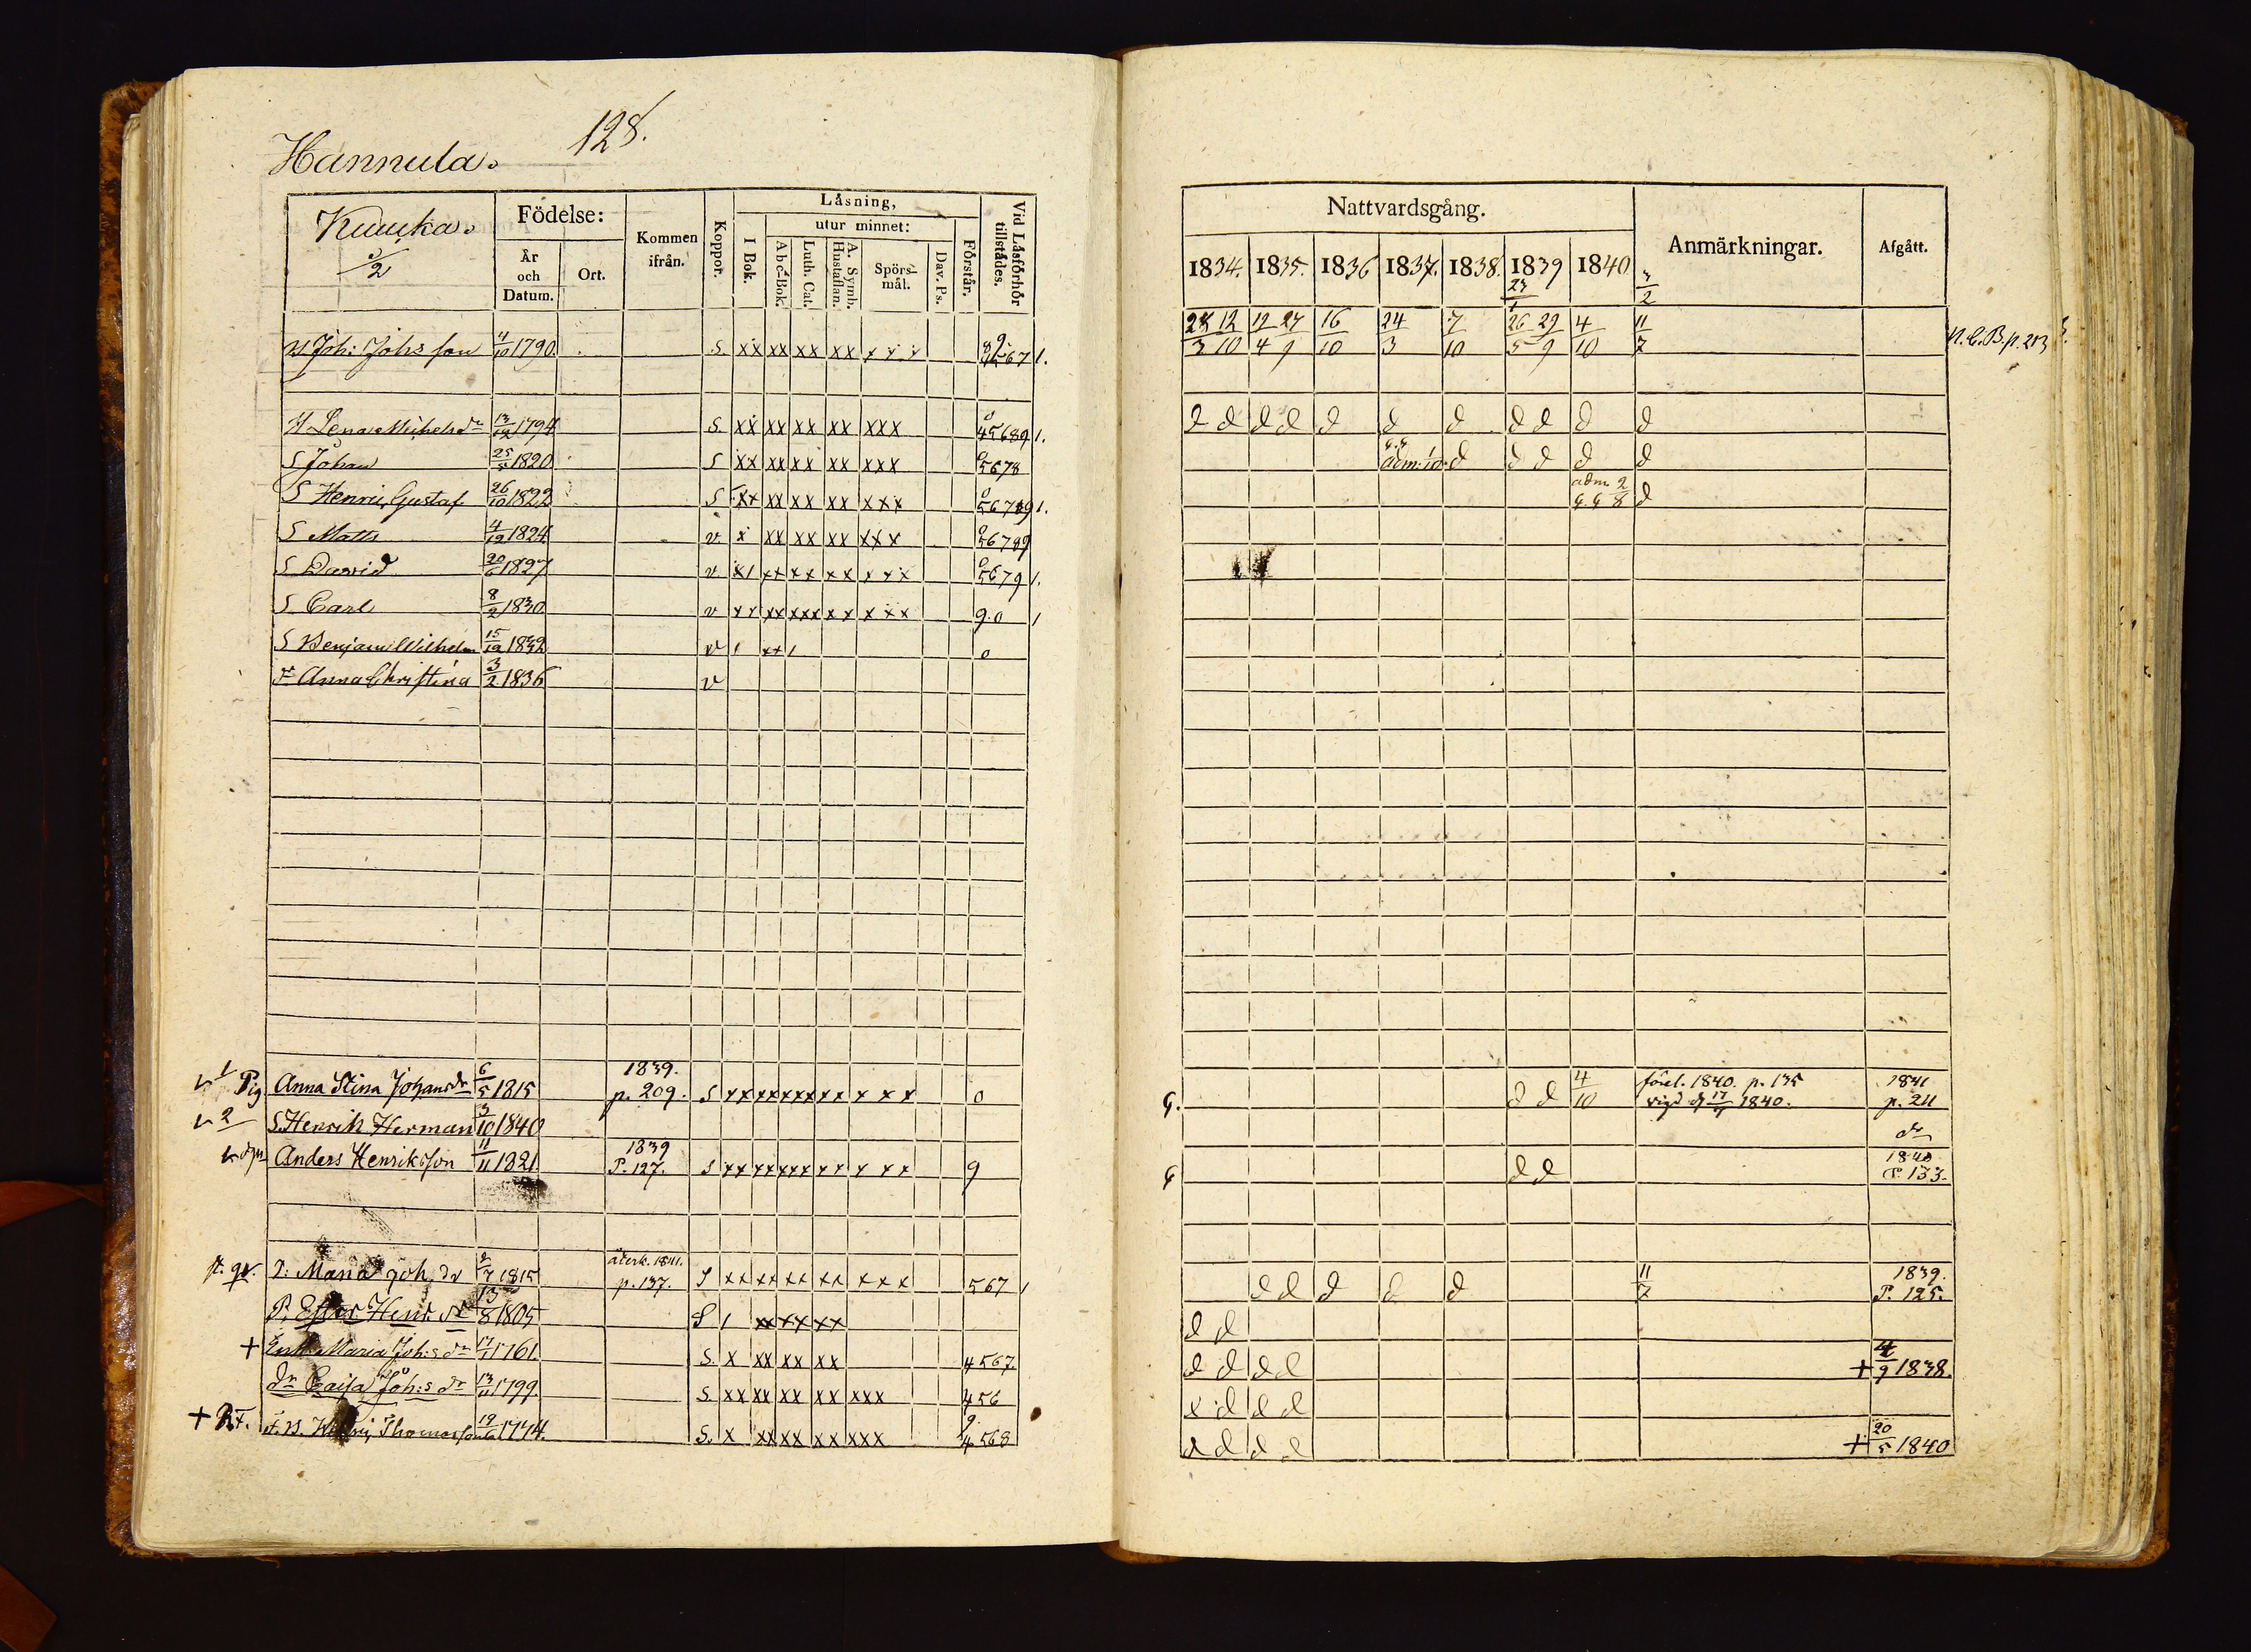 128.
Hannula.
Födelse:
Kommen ifrån.
Koppor.
Läsning,
utur minnet:
I Bok.
Abc-Bok.
Luth. Cat.
A. Symb. Hustaflan.
Spörsmål.
Dav. Ps.
Förstår.
Vid Läsförhör tillstådes.
År och Datum.
Ort.
1/2
Joh: Johs son 11/10 1790 S. xx xx xx xx x x x 1.
Lena Michelsdr 13/12 1794 S. xx xx xx xx xxx 45689 1.
S Johan 25/5 1820 S xx xx xx xx xxx 5678
S Henric Gustaf 26/10 1822 S xx xx xx xx xxx 56789 1.
S Matts 4/12 1824 v x xx xx xx xxx 56789
S David 20/6 1827 v x1 xx xx xx xxx 5679 1.
S Carl 8/2 1830 v xx xx xxx xx x xx 9.0 1
S Benjam Wilhelm 15/12 1832 v 1 xx 1 0
Anna Christina 3/2 1836 v
1 Pig Anna Stina Johansdr 6/5 1815 1839. p. 209. S xx xx xx xx x xx 0
2 S. Henrik Herman 3/10 1840
Anders Henriksson 11/11 1821 1839 P. 127. S xx xx xxx xx x xx 9
Maria Joh. dr 1815 återk. 1841. p. 137. S xx xx xx xx xxx 567 1
P. Ester Henr. dr 13/8 1805 S 1 xx xx xx
+ Maria Joh:s dr 17/1 1761. S. x xx xx xx 4567.
dr Caisa Joh:s dr 13/11 1799. S. xx xx xx xx xxx 456
+ Thomasson 1744. S. x xx xx xx xxx 9 4568
Nattvardsgång.
Anmärkningar.
Afgått.
1834. 1835. 1836 1837. 1838. 1839 1840
23/1 3/2
28/3 12/10 12/4 27/9 16/10 24/3 7/10 26/5 29/9 4/10 11/7 N.C.B. p. 213
d d d d d d d d d d d
adm. 1/10. d d d d d
adm. 2/8 d
G. d d 4/10 förel. 1840. p. 135 1841 p. 211
vigd d 1840.
dr
G d d 1840 P. 133.
d d d d d 11/7 1839. P. 125.
d d
d d d d + 4/9 1838.
d d d
d d d d + 20/5 1840